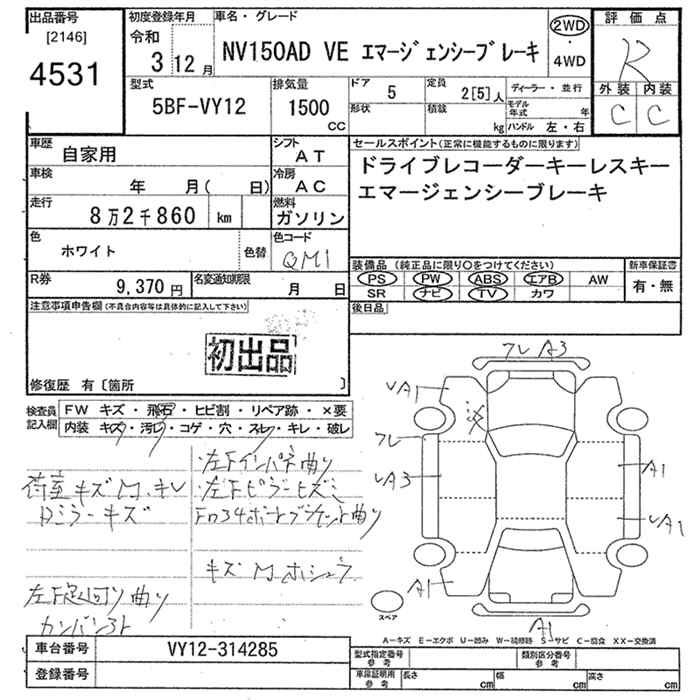 出品番号
[2146]
4531
初度登録年月
令和
3 12 月
車名・グレード
NV150AD VE エマージェンシーブレーキ
2WD
・
4WD
評価点
R
外装 内装
C C
型式
5BF-VY12
排気量
1500
CC
ドア
5
定員
2[5]人
ディーラー・並行
形状
積載
kg
モデル
年式 年
ハンドル 左・右
車歴
自家用
シフト
AT
車検
年 月( 日)
冷房
AC
走行
8万2千860 km
燃料
ガソリン
色
ホワイト
色替
色コード
QM1
R券
9,370 円
名変通知期限
月 日
セールスポイント(正常に機能するものに限ります)
ドライブレコーダーキーレスキー
エマージェンシーブレーキ
装備品 (純正品に限り○をつけてください)
新車保証書
PS PW ABS エアB AW
SR ナビ TV カワ
有・無
後日品
注意事項申告欄(不具合内容等は具体的に記入して下さい)
初出品
修復歴 有〔箇所 〕
検査員
記入欄
FW キズ・飛石・ヒビ割・リペア跡・×要
内装 キズ・汚レ・コゲ・穴・スレ・キレ・破レ
左Fインパネ曲り
荷室キズM.キレ
左Fピラーヒズミ
Dミラーキズ
キズMホシュウ
左F足回り曲り
カンバン3ト
フレ A3
UA1
フレ
UA3
A1
UA1
A1
A1
スペア
A-キズ E-エクボ U-凹み W-補修跡 S-サビ C-腐食 XX-交換済
車台番号
VY12-314285
登録番号
型式指定番号
参考
類別区分番号
参考
車庫証明用
参考
長さ cm
幅 cm
高さ cm